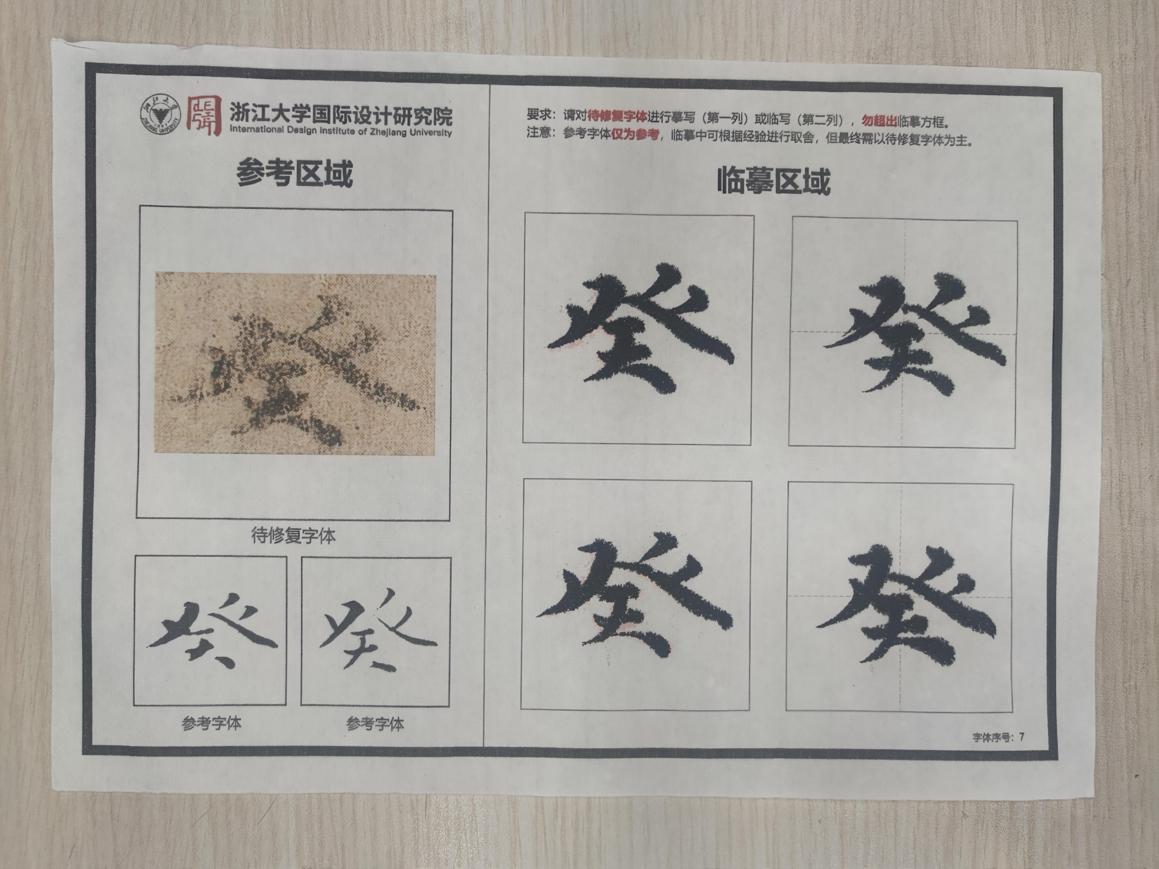 浙江大学国际设计研究院
International Design Institute of Zhejiang University
参考区域
癸
待修复字体
癸 癸
参考字体 参考字体
要求：请对待修复字体进行摹写（第一列）或临写（第二列），勿超出临摹方框。
注意：参考字体仅为参考，临摹中可根据经验进行取舍，但最终需以待修复字体为主。
临摹区域
癸 癸
癸 癸
字体序号：7